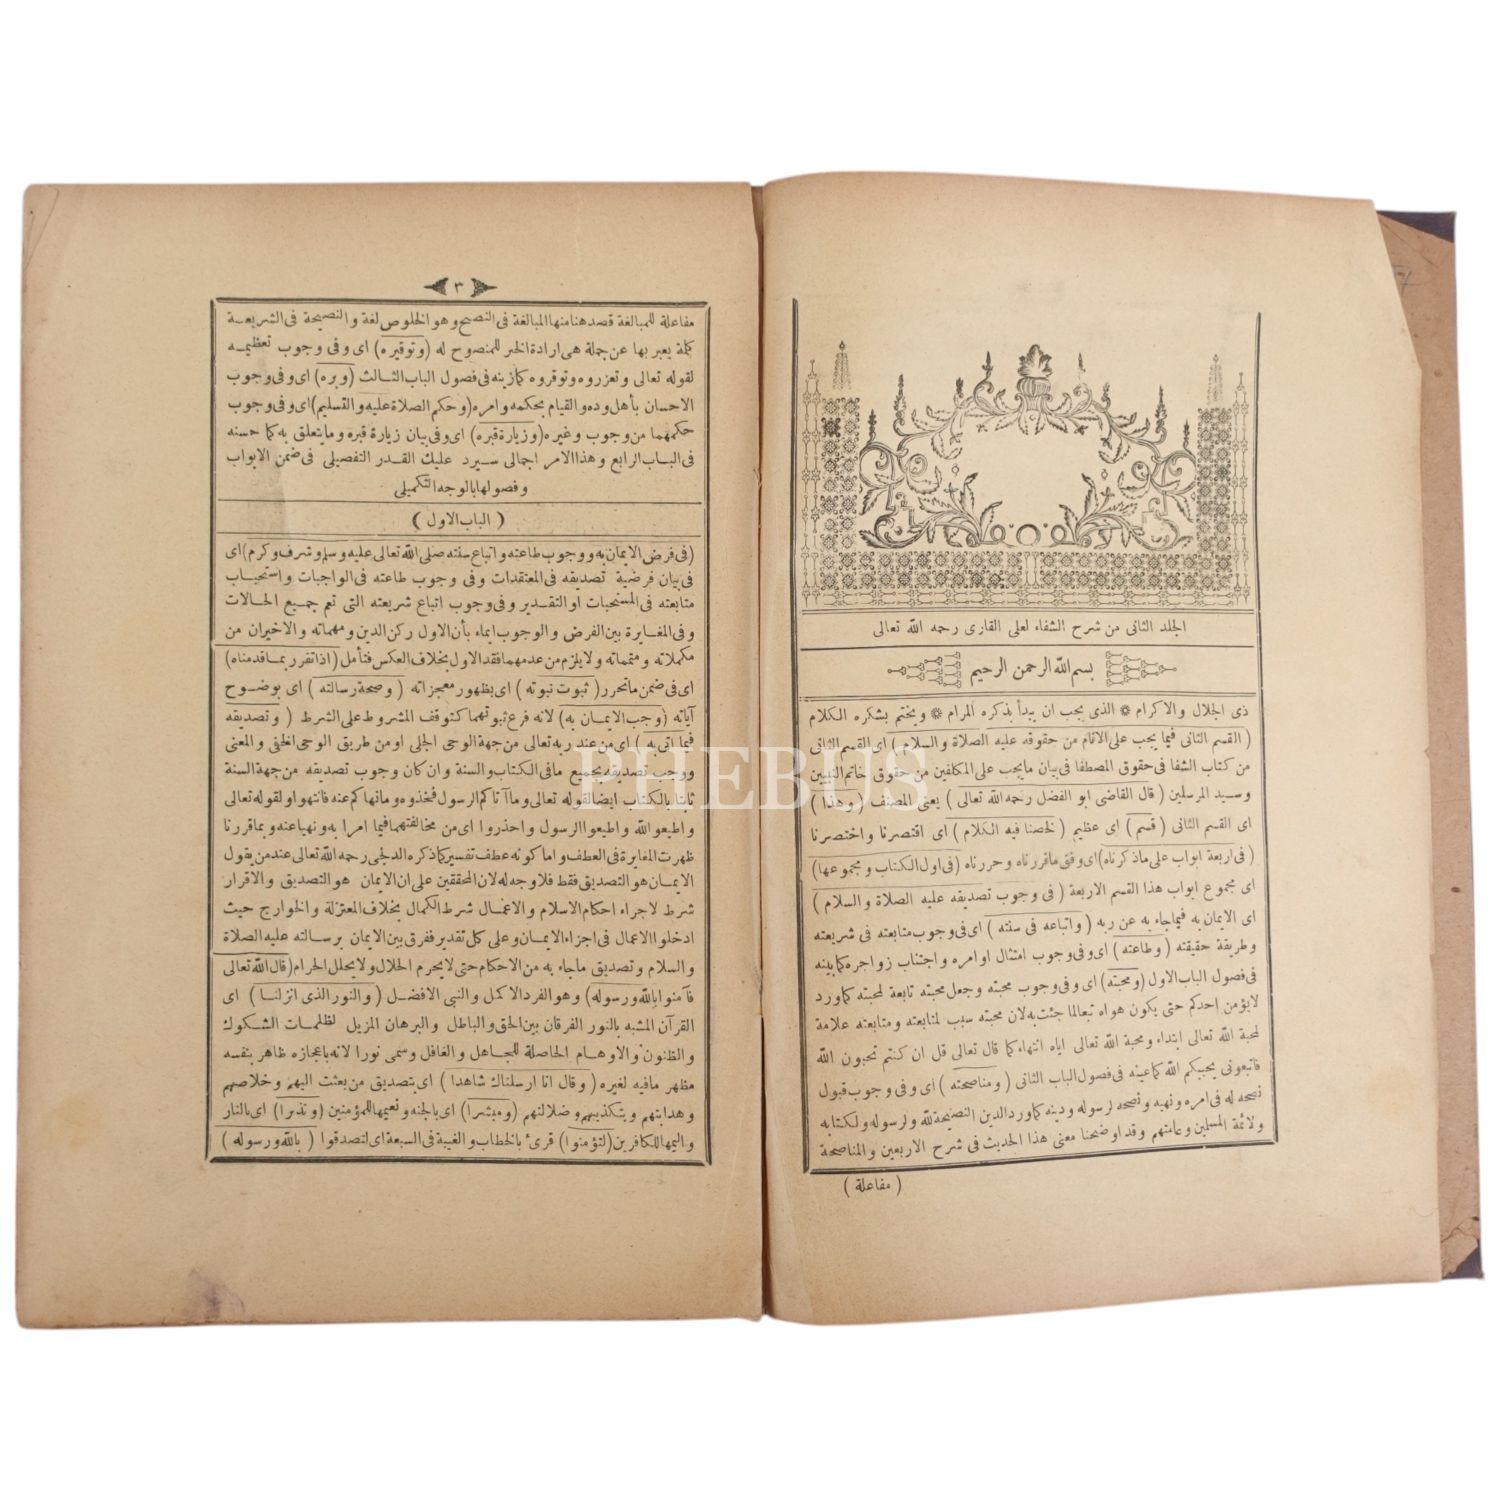 الجلد الثانى من شرح الشفاء لعلى القارى رحمه الله تعالى
بسم الله الرحمن الرحيم
ذى الجلال والاكرام * الذى يجب ان يبدأ بذكره المرام * ويختم بشكره الكلام
(القسم الثانى فيما يجب على الانام من حقوقه عليه الصلاة والسلام) اى القسم الثانى
من كتاب الشفا فى حقوق المصطفا فى بيان ما يجب على المكلفين من حقوق خاتم النبيين
وسيد المرسلين (قال القاضى ابو الفضل رحمه الله تعالى) يعنى المصنف (وهذا)
اى القسم الثانى (قسم) اى عظيم (لخصنا فيه الكلام) اى اقتصرنا واختصرنا
(فى اربعة ابواب على ماذكرناه) اى وفق ماقررناه وحررناه (فى اول الكتاب ومجموعها)
اى مجموع ابواب هذا القسم الاربعة (فى وجوب تصديقه عليه الصلاة والسلام)
اى الايمان به فيما جاء به عن ربه (واتباعه فى سنته) اى وفى وجوب متابعته فى شريعته
وطريقة حقيقته (وطاعته) اى وفى وجوب امتثال اوامره واجتناب زواجره كما بينه
فى فصول الباب الاول (ومحبته) اى وفى وجوب محبته وجعل محبته تابعة لمحبته كما ورد
لايؤمن احدكم حتى يكون هواه تبعا لما جئت به لان محبته سبب لمتابعته ومتابعته علامة
لمحبة الله تعالى ابتداء ومحبة الله تعالى اياه انتهاء كما قال تعالى قل ان كنتم تحبون الله
فاتبعونى يحببكم الله كما عينه فى فصول الباب الثانى (ومناصحته) اى وفى وجوب قبول
نصحه له فى امره ونهيه ونصحه لرسوله ودينه كما ورد الدين النصيحة لله ولرسوله ولكتابه
ولائمة المسلمين وعامتهم وقد اوضحنا معنى هذا الحديث فى شرح الاربعين والمناصحة
(مفاعلة)
٣
مفاعلة للمبالغة قصد هنا منها المبالغة فى النصيح وهو الخلوص لغة والنصيحة فى الشريعة
كلمة يعبر بها عن جملة هى ارادة الخير للمنصوح له (وتوقيره) اى وفى وجوب تعظيمه
لقوله تعالى وتعزروه وتوقروه كما زينه فى فصول الباب الثالث (وبره) اى وفى وجوب
الاحسان بأهل وده والقيام بحكمه وامره (وحكم الصلاة عليه والتسليم) اى وفى وجوب
حكمهما من وجوب وغيره (وزيارة قبره) اى وفى بيان زيارة قبره وما يتعلق به كما حسنه
فى الباب الرابع وهذا الامر اجمالى سيرد عليك القدر التفصيلى فى ضمن الابواب
وفصولها بالوجه التكميلى
(الباب الاول)
(فى فرض الايمان به ووجوب طاعته واتباع سنته صلى الله تعالى عليه وسلم وشرف وكرم) اى
فى بيان فرضية تصديقه فى المعتقدات وفى وجوب طاعته فى الواجبات واستحباب
متابعته فى المستحبات او التقدير وفى وجوب اتباع شريعته التى تعم جميع الحالات
وفى المغايرة بين الفرض والوجوب ايماء بأن الاول ركن الدين ومهماته والاخيران من
مكملاته ومتمماته ولا يلزم من عدمهما فقد الاول بخلاف العكس فتأمل (اذا تقرر بما قدمناه)
اى فى ضمن ماتحرر (ثبوت نبوته) اى بظهور معجزاته (وصحة رسالته) اى بوضوح
آياته (وجب الايمان به) لانه فرع ثبوتهما كتوقف المشروط على الشرط (وتصديقه
فيما اتى به) اى من عند ربه تعالى من جهة الوحى الجلى او من طريق الوحى الخفى والمعنى
ووجب تصديقه بجميع مافى الكتاب والسنة وان كان وجوب تصديقه من جهة السنة
ثابتا بالكتاب ايضا لقوله تعالى وما آتاكم الرسول فخذوه ومانهاكم عنه فانتهوا ولقوله تعالى
واطيعوا الله واطيعوا الرسول واحذروا اى من مخالفتهما فيما امرا به ونهيا عنه وبما قررنا
ظهرت المغايرة فى العطف واما كونه عطف تفسير كما ذكره الدلجى رحمه الله تعالى عند من يقول
الايمان هو التصديق فقط فلا وجه له لان المحققين على ان الايمان هو التصديق والاقرار
شرط لاجراء احكام الاسلام والاعمال شرط الكمال بخلاف المعتزلة والخوارج حيث
ادخلوا الاعمال فى اجزاء الايمان وعلى كل تقدير ففرق بين الايمان برسالته عليه الصلاة
والسلام وتصديق ماجاء به من الاحكام حتى لايحرم الحلال ولا يحلل الحرام (قال الله تعالى
فآمنوا بالله ورسوله) وهو الفرد الاكمل والنبى الافضل (والنور الذى انزلنا) اى
القرآن المشبه بالنور الفرقان بين الحق والباطل والبرهان المزيل لظلمات الشكوك
والظنون والاوهام الحاصلة للجاهل والغافل وسمى نورا لانه باعجازه ظاهر بنفسه
مظهر مافيه لغيره (وقال انا ارسلناك شاهدا) اى بتصديق من بعثت اليهم وخلاصهم
وهدايتهم وبتكذيبهم وضلالتهم (ومبشرا) اى بالجنة ونعيمها للمؤمنين (ونذيرا) اى بالنار
واليمها للكافرين (لتؤمنوا) قرئ بالخطاب والغيبة فى السبعة اى لتصدقوا (بالله ورسوله)
PHEBUS